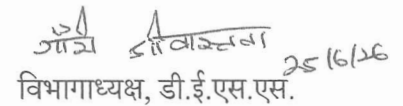 गौरी श्रीवास्तवा
25/6/26
विभागाध्यक्ष, डी.ई.एस.एस.